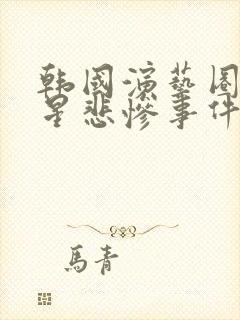 韩國演藝圈
星悲慘事件
馬青